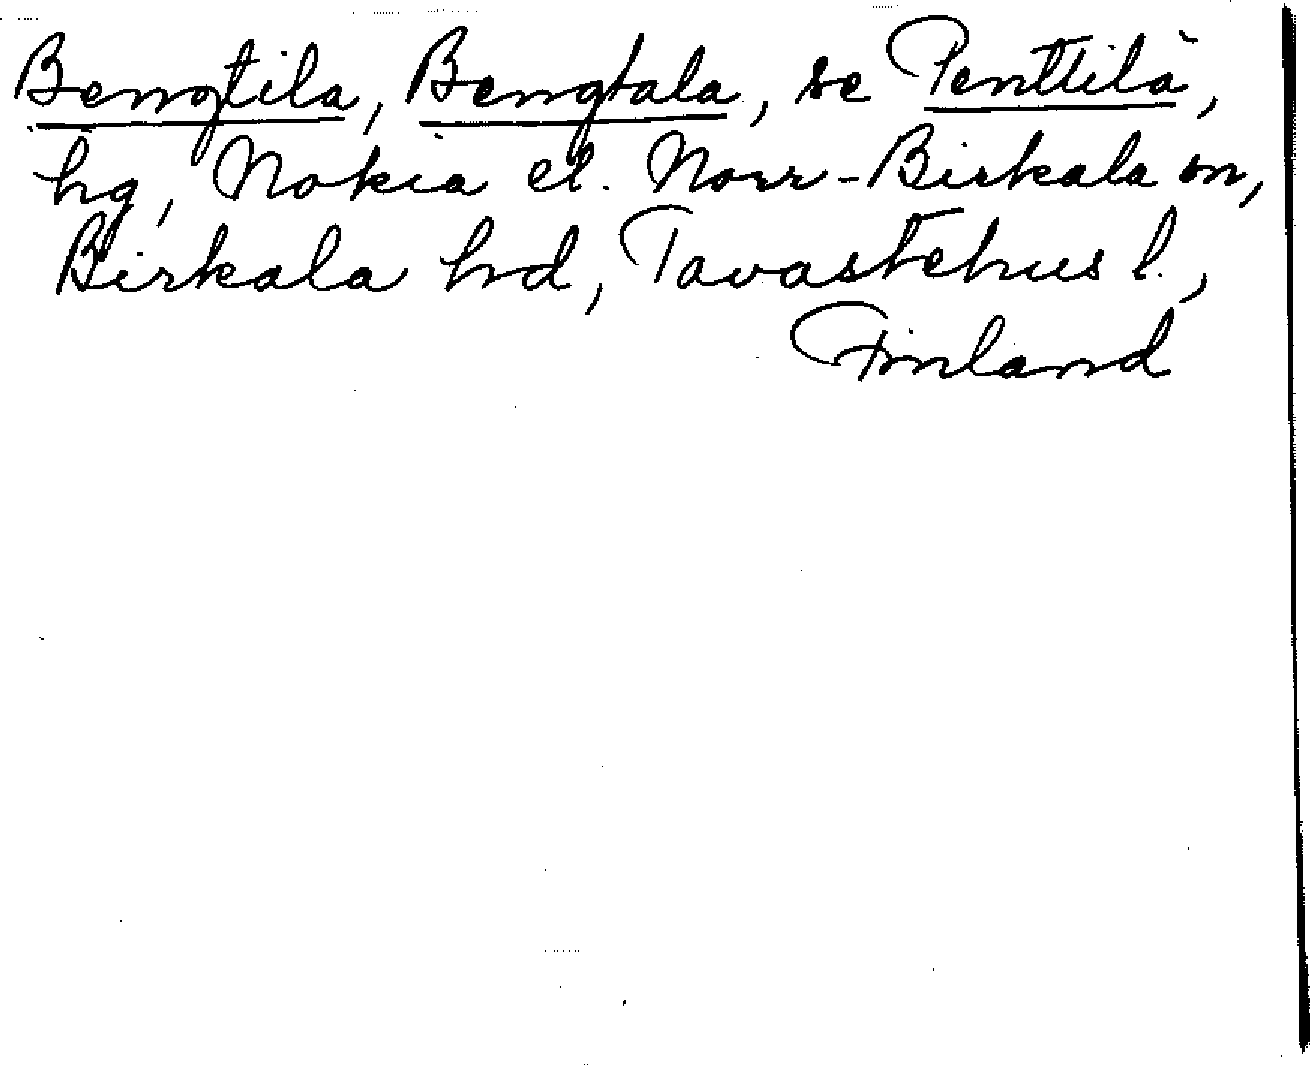 Bengtila, Bengtala, se Penttilä,
hg, Nokia el. Norr-Birkala sn,
Birkala hrd, Tavastehus l.,
Finland